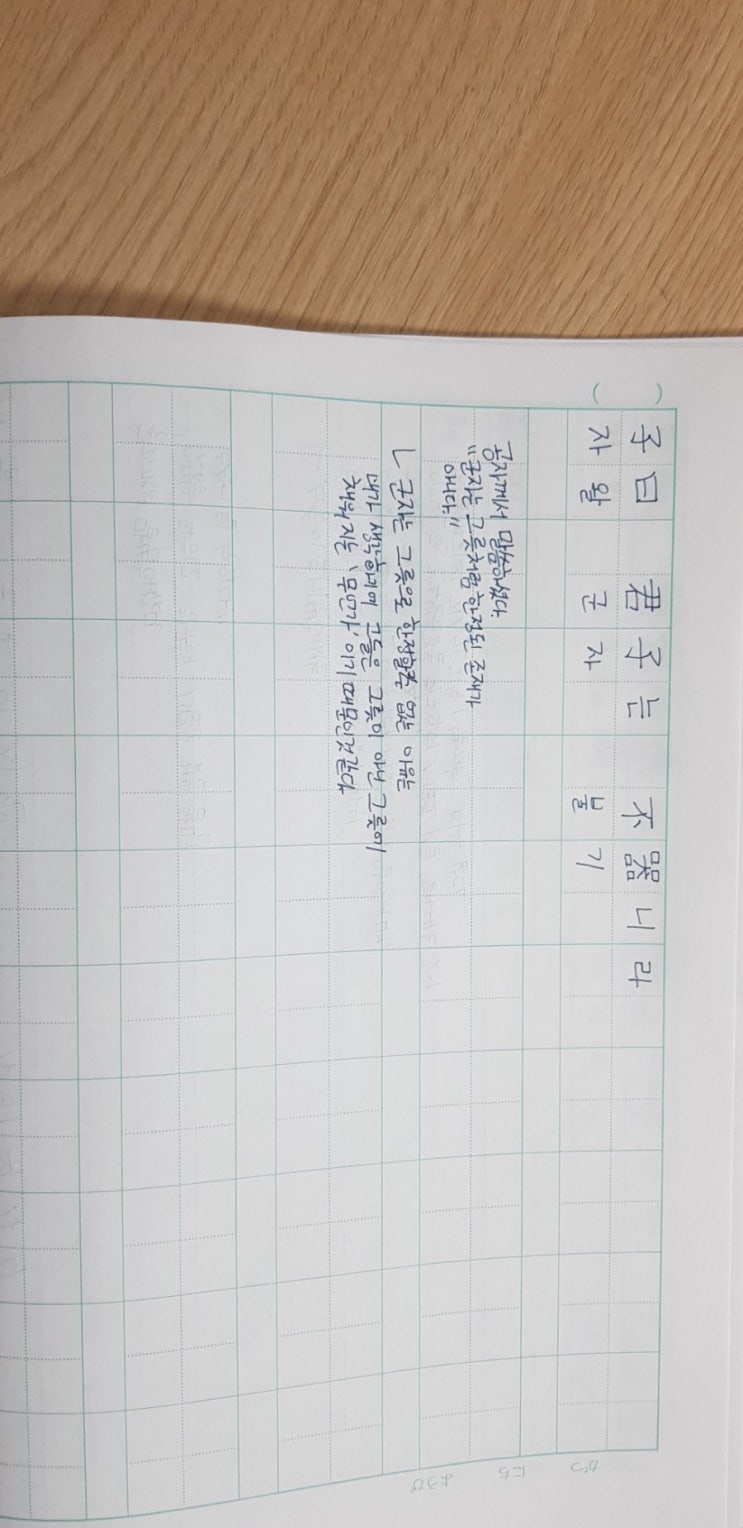 子曰 君子는 不器니라
자왈 군자 불기
공자께서 말씀하셨다.
"군자는 그릇처럼 한정된 존재가
아니다."
ㄴ 군자는 그릇으로 한정할수 없는 이유는
내가 생각하기에 그들은 그릇이 아닌 그릇에
채워지는 '무언가' 이기 때문인것 같다.
がつ
にち
ようび